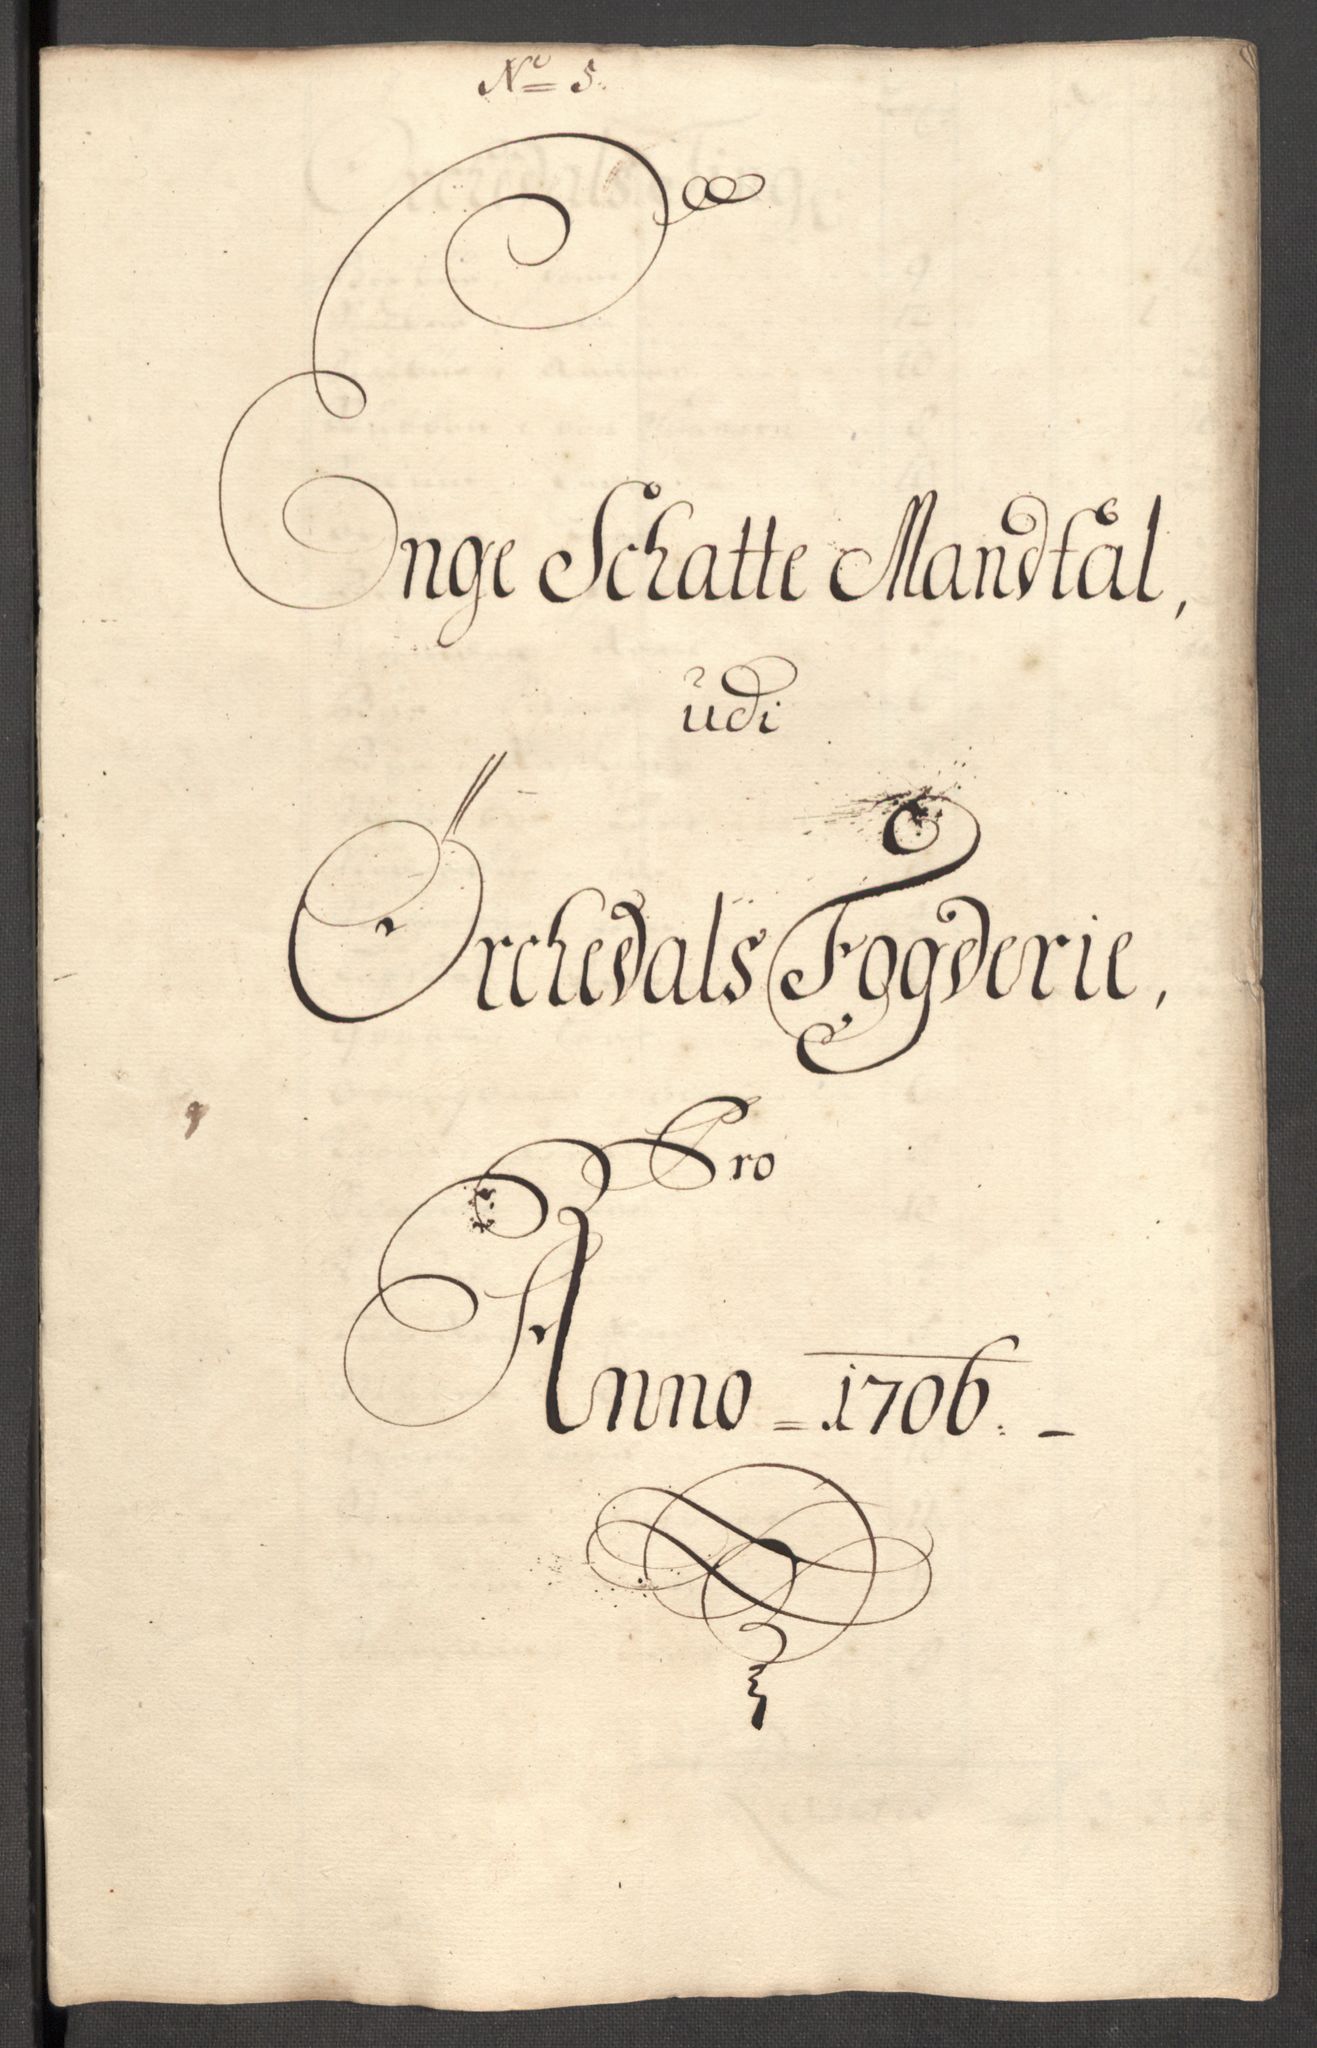 No 5.
Enge Schatte Mandtal,
udi
Orchedals Fogderie,
Pro
Anno = 1706. -